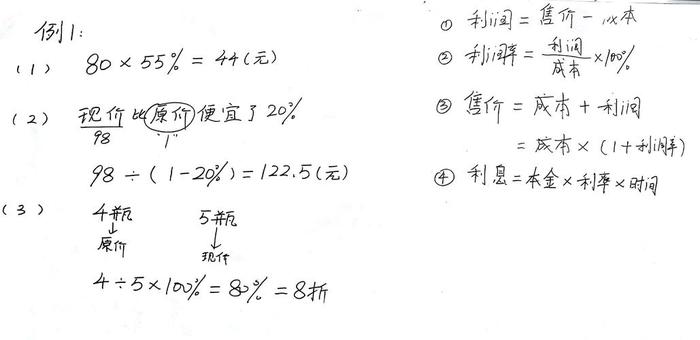 例1:
(1) 80×55%=44(元)
(2) 现价比原价便宜了20%
98 "1"
98÷(1-20%)=122.5(元)
(3) 4瓶 5瓶
↓ ↓
原价 现价
4÷5×100%=80%=8折
① 利润=售价-成本
② 利润率=利润/成本×100%
③ 售价=成本+利润
=成本×(1+利润率)
④ 利息=本金×利率×时间